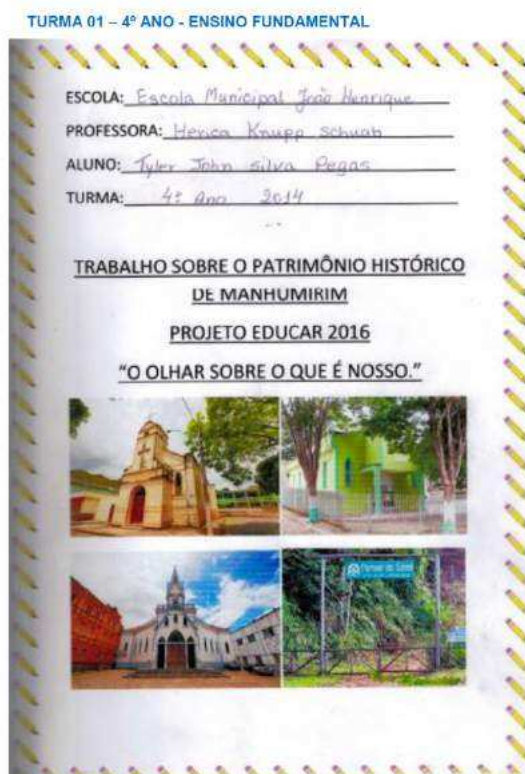 TURMA 01 – 4º ANO - ENSINO FUNDAMENTAL
ESCOLA: Escola Municipal João Henrique
PROFESSORA: Herica Knupp Schuab
ALUNO: Tyler John Silva Pegas
TURMA: 4º Ano 2014
TRABALHO SOBRE O PATRIMÔNIO HISTÓRICO
DE MANHUMIRIM
PROJETO EDUCAR 2016
"O OLHAR SOBRE O QUE É NOSSO."